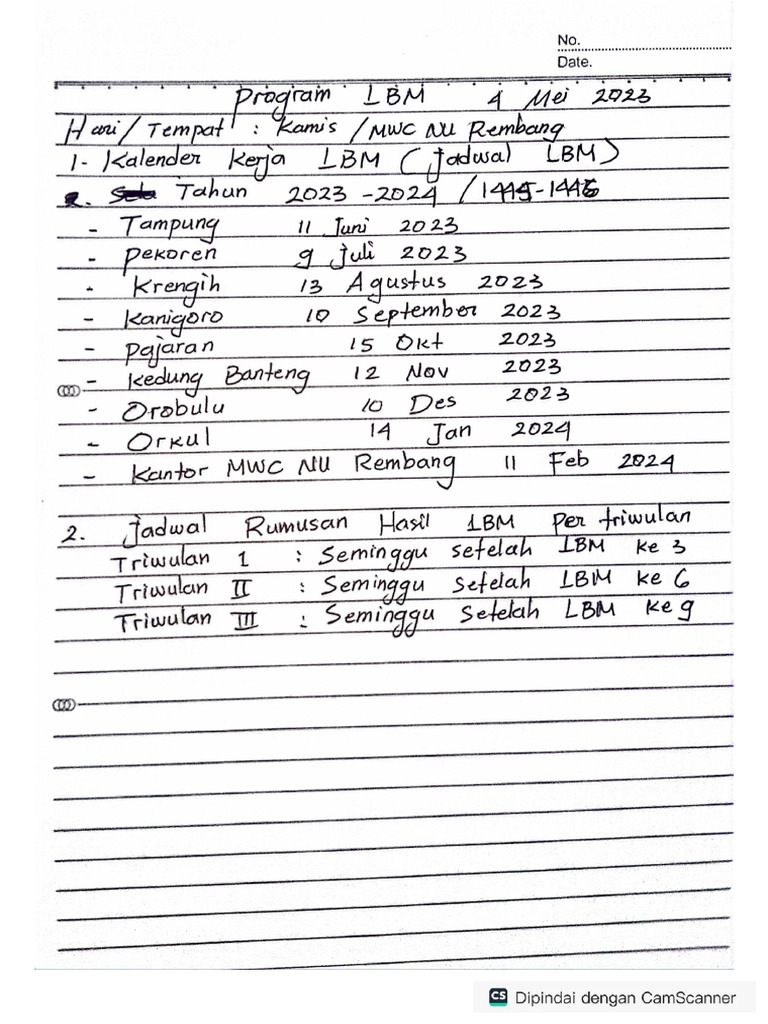 No.
Date.
Program LBM 4 Mei 2023
Hari / Tempat : Kamis / MWC NU Rembang
1- Kalender Kerja LBM ( Jadwal LBM )
Tahun 2023 - 2024 / 1445-1446
- Tampung 11 Juni 2023
- Pekoren 9 Juli 2023
- Krengih 13 Agustus 2023
- Kanigoro 10 September 2023
- Pajaran 15 Okt 2023
- Kedung Banteng 12 Nov 2023
- Orobulu 10 Des 2023
- Orkul 14 Jan 2024
- Kantor MWC NU Rembang 11 Feb 2024
2. Jadwal Rumusan Hasil LBM Per triwulan
Triwulan 1 : Seminggu setelah LBM ke 3
Triwulan II : Seminggu Setelah LBM ke 6
Triwulan III : Seminggu Setelah LBM ke 9
CS Dipindai dengan CamScanner